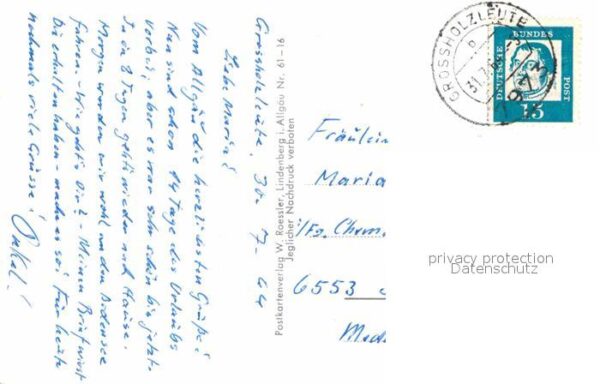 Grossholzleute, 30.-7-64
Liebe Maria!
Vom Allgäu die herzlichsten Grüße!
Nun sind schon 14 Tage des Urlaubs
vorbei, aber es war sehr schön bis jetzt.
In 8 Tagen gehts wieder nach Hause.
Morgen werden wir wohl an den Bodensee
fahren. - Wie geht's Dir? - Meinen Brief wirst
Du erhalten haben - mach es so! Für heute
nochmals viele Grüsse!
Postkartenverlag W. Roessler, Lindenberg i. Allgäu Nr. 61-16
Jeglicher Nachdruck verboten
GROSSHOLZLEUTE
DEUTSCHE BUNDES POST
15
Fräulein
Maria
i/Fa. Chem.
6553
privacy protection
Datenschutz